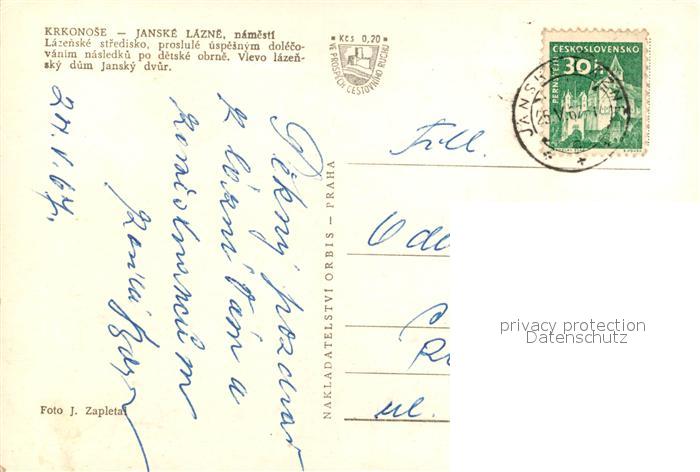 KRKONOŠE — JANSKÉ LÁZNĚ, náměstí
Lázeňské středisko, proslulé úspěšným doléčo-
váním následků po dětské obrně. Vlevo lázeň-
ský dům Janský dvůr.
Kčs 0,20
VE PROSPĚCH CESTOVNÍHO RUCHU
ČESKOSLOVENSKO
30 h
PERNŠTEJN
JANSK
25.V.62
Pěkný pozdrav
z lázní Vám a
24. V. 62.
NAKLADATELSTVÍ ORBIS — PRAHA
Ode
ul.
privacy protection
Datenschutz
Foto J. Zapletal